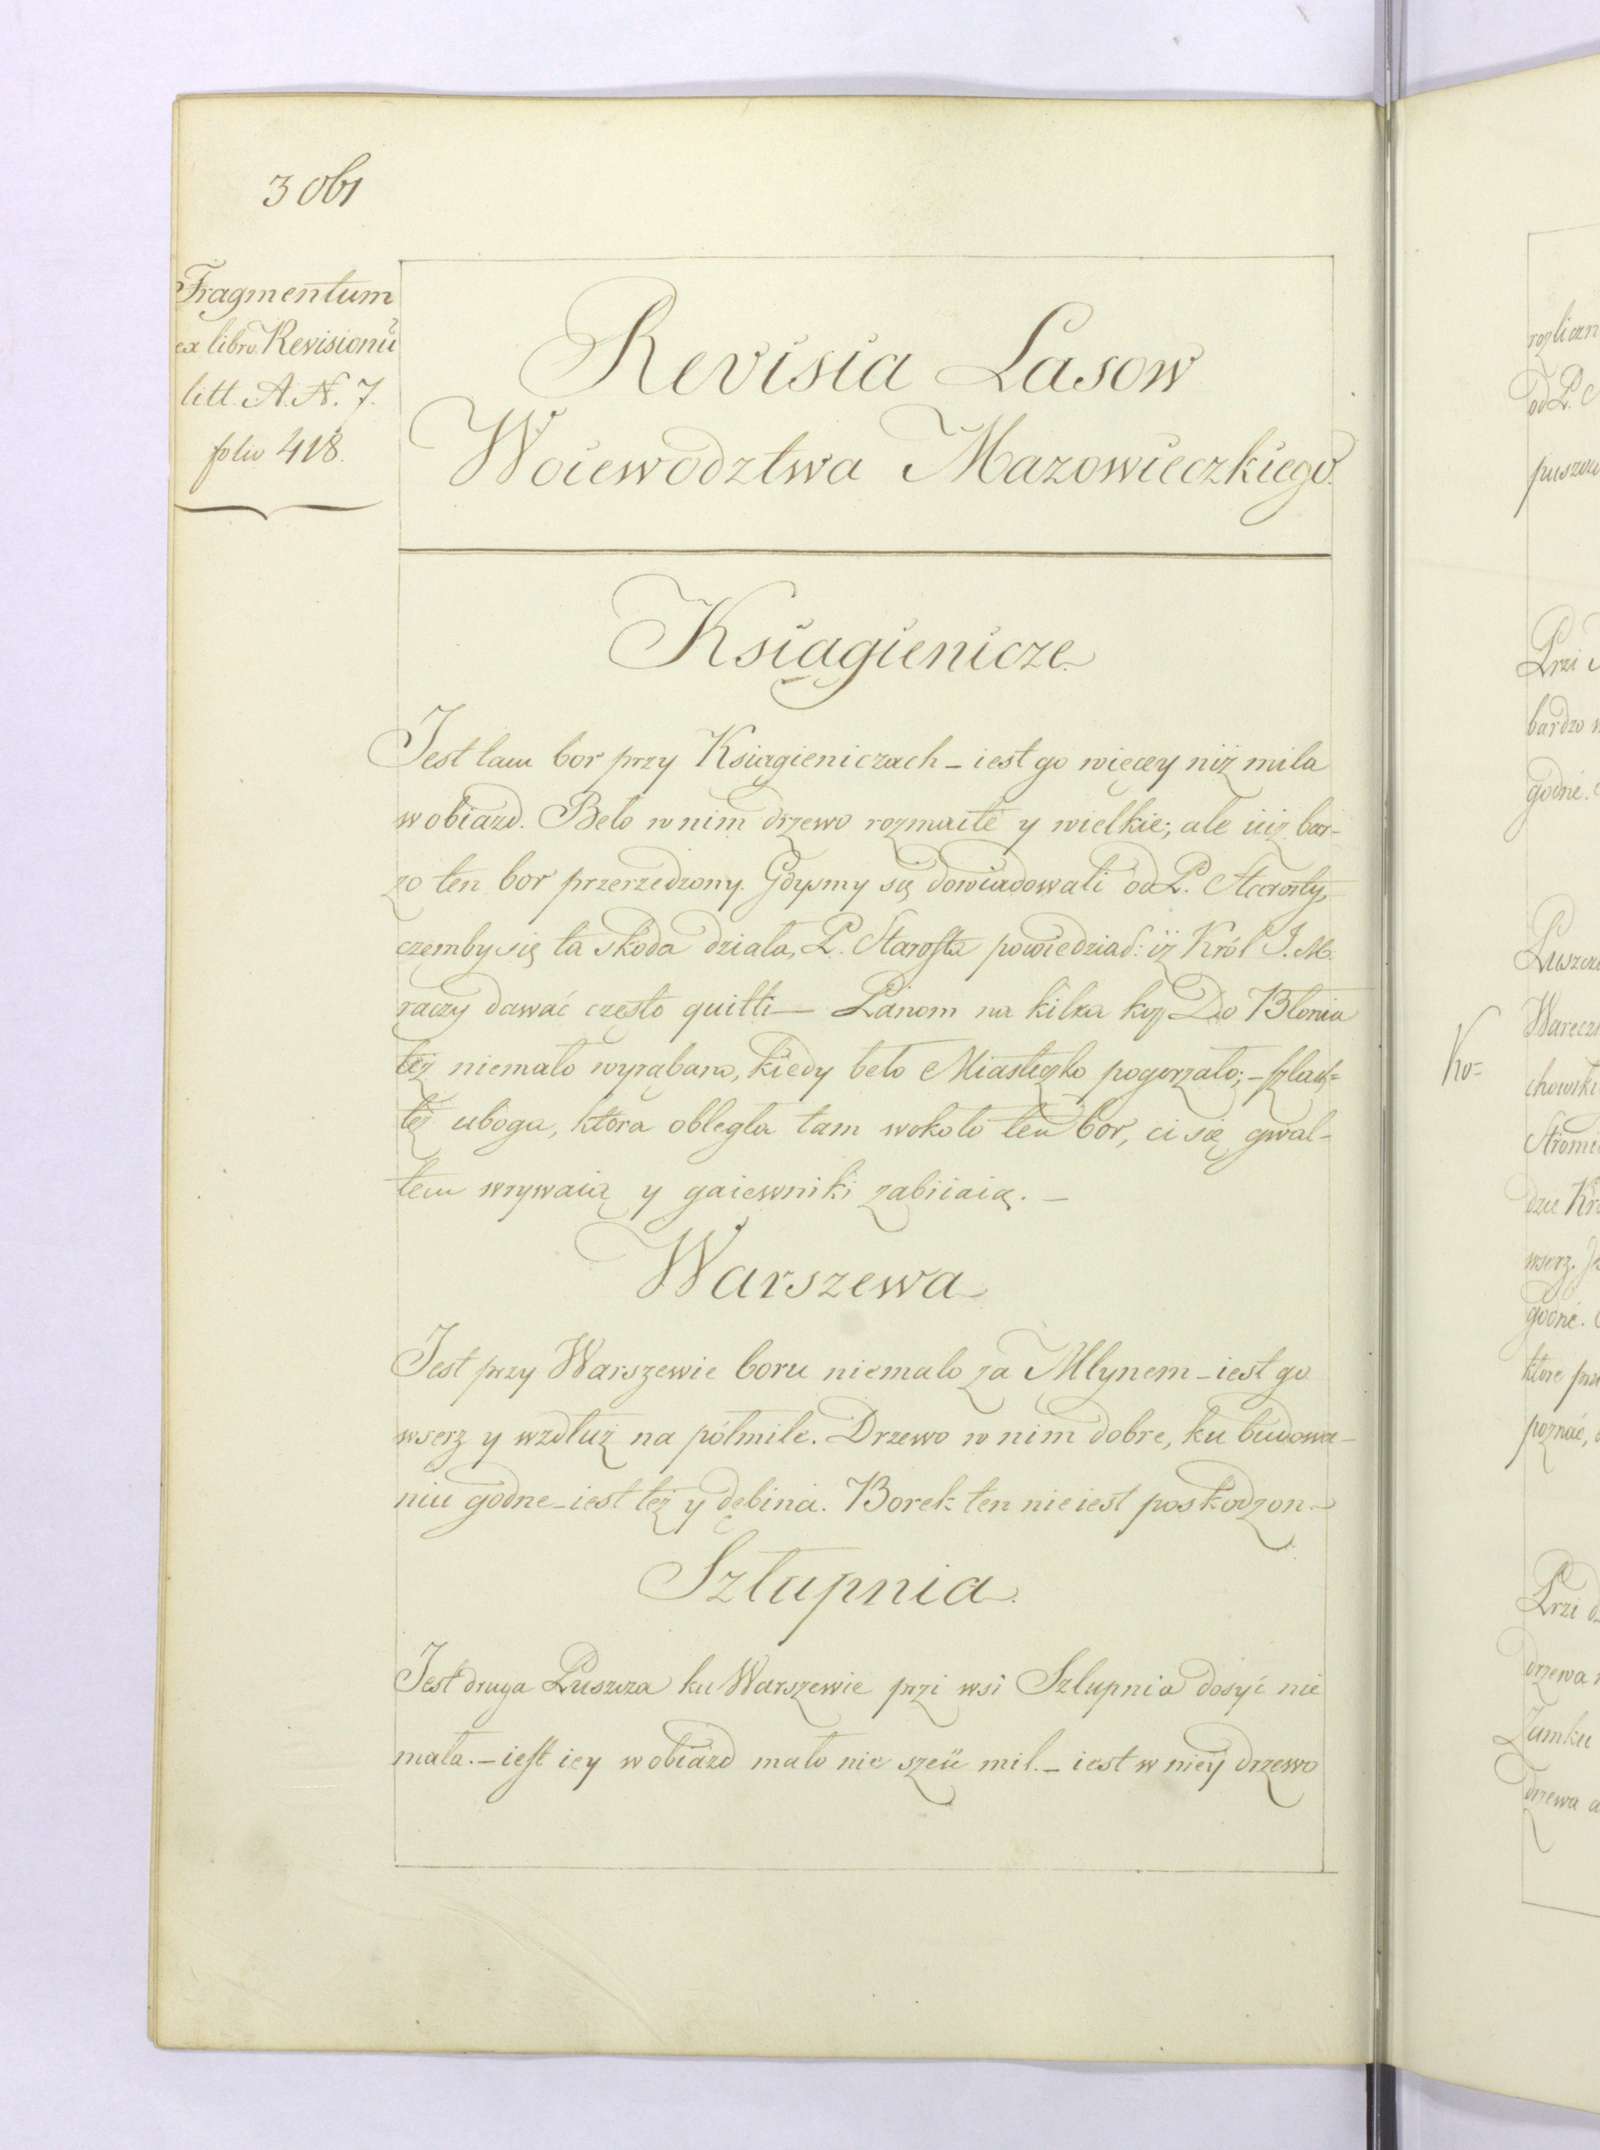 3 ob1
Fragmentum
ex libro Revisionũ
litt. A. N. 7.
folio 418.
Revisia Lasow
Woiewodztwa Mazowieczkiego.
Ksiągienicze
Jest tam bor przy Ksiągieniczach – iest go więcey niż mila
w obiazd. Beło w nim drzewo rozmaite y wielkie; ale iuż bar-
zo ten bor przerzedzony. Gdysmy się dowiadowali od P. Starosty,
czemby się ta skoda działa, P. Starosta powiedział: iż Król J. M.
raczy dawać często quitki – Panom na kilka kop Do Błonia
też niemało wyrąbano, kiedy beło Miasteczko pogorzało; – szlach=
też uboga, ktora obległa tam wokoło ten bor, ci się gwał-
tem wrywaią y gaiewniki zabiiaią. –
Warszewa
Jest przy Warszewie boru niemało za Młynem – iest go
wserz y wzdłuż na półmile. Drzewo w nim dobre, ku budowa-
niu godne – iest też y dębina. Borek ten nieiest poskodzon –
Szłupnia
Jest druga Puszcza ku Warszewie przi wsi Szlupnia dosyć nie
mała. – iest iey w obiazd mało nie szeń mil. – iest w niey drzewo
Ko-
od P.
Przi
bardzo
godne.
godne.
ktore
poznać,
Przi
drzewa
Zamku
drzewa